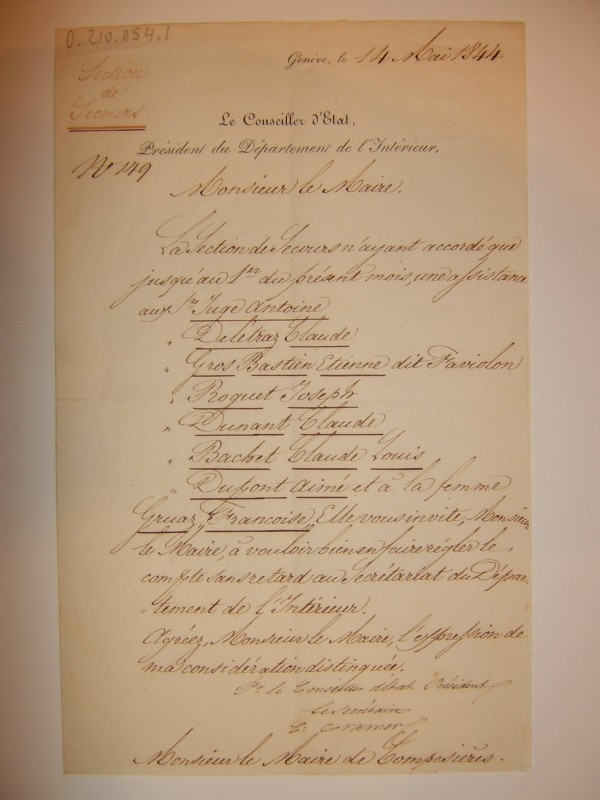 0.210.054.1
Section
de
Secours
Genève, le 14 Mai 1844
Le Conseiller d'Etat,
Président du Département de l'Intérieur,
No 149
Monsieur le Maire.
La Section de Secours n'ayant accordé que
jusqu'au 1er du présent mois, une assistance
aux Srs Juge Antoine
" Deletraz Claude
" Gros Bastien Etienne dit Faviolon
" Roguet Joseph
" Dunant Claude
" Bachet Claude Louis
" Dupont Aimé et à la femme
Gruaz Françoise, Elle vous invite, Monsieur
le Maire, à vouloir bien en faire régler le
compte sans retard au Secrétariat du Dépar-
-tement de l'Intérieur.
Agréez, Monsieur le Maire, l'expression de
ma considération distinguée.
Pr. le Conseiller d'Etat Président
Le Secrétaire
Cramer
Monsieur le Maire de Compesières.